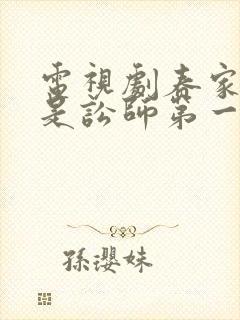 電視劇春家
是訟師第一
孫瓔妹